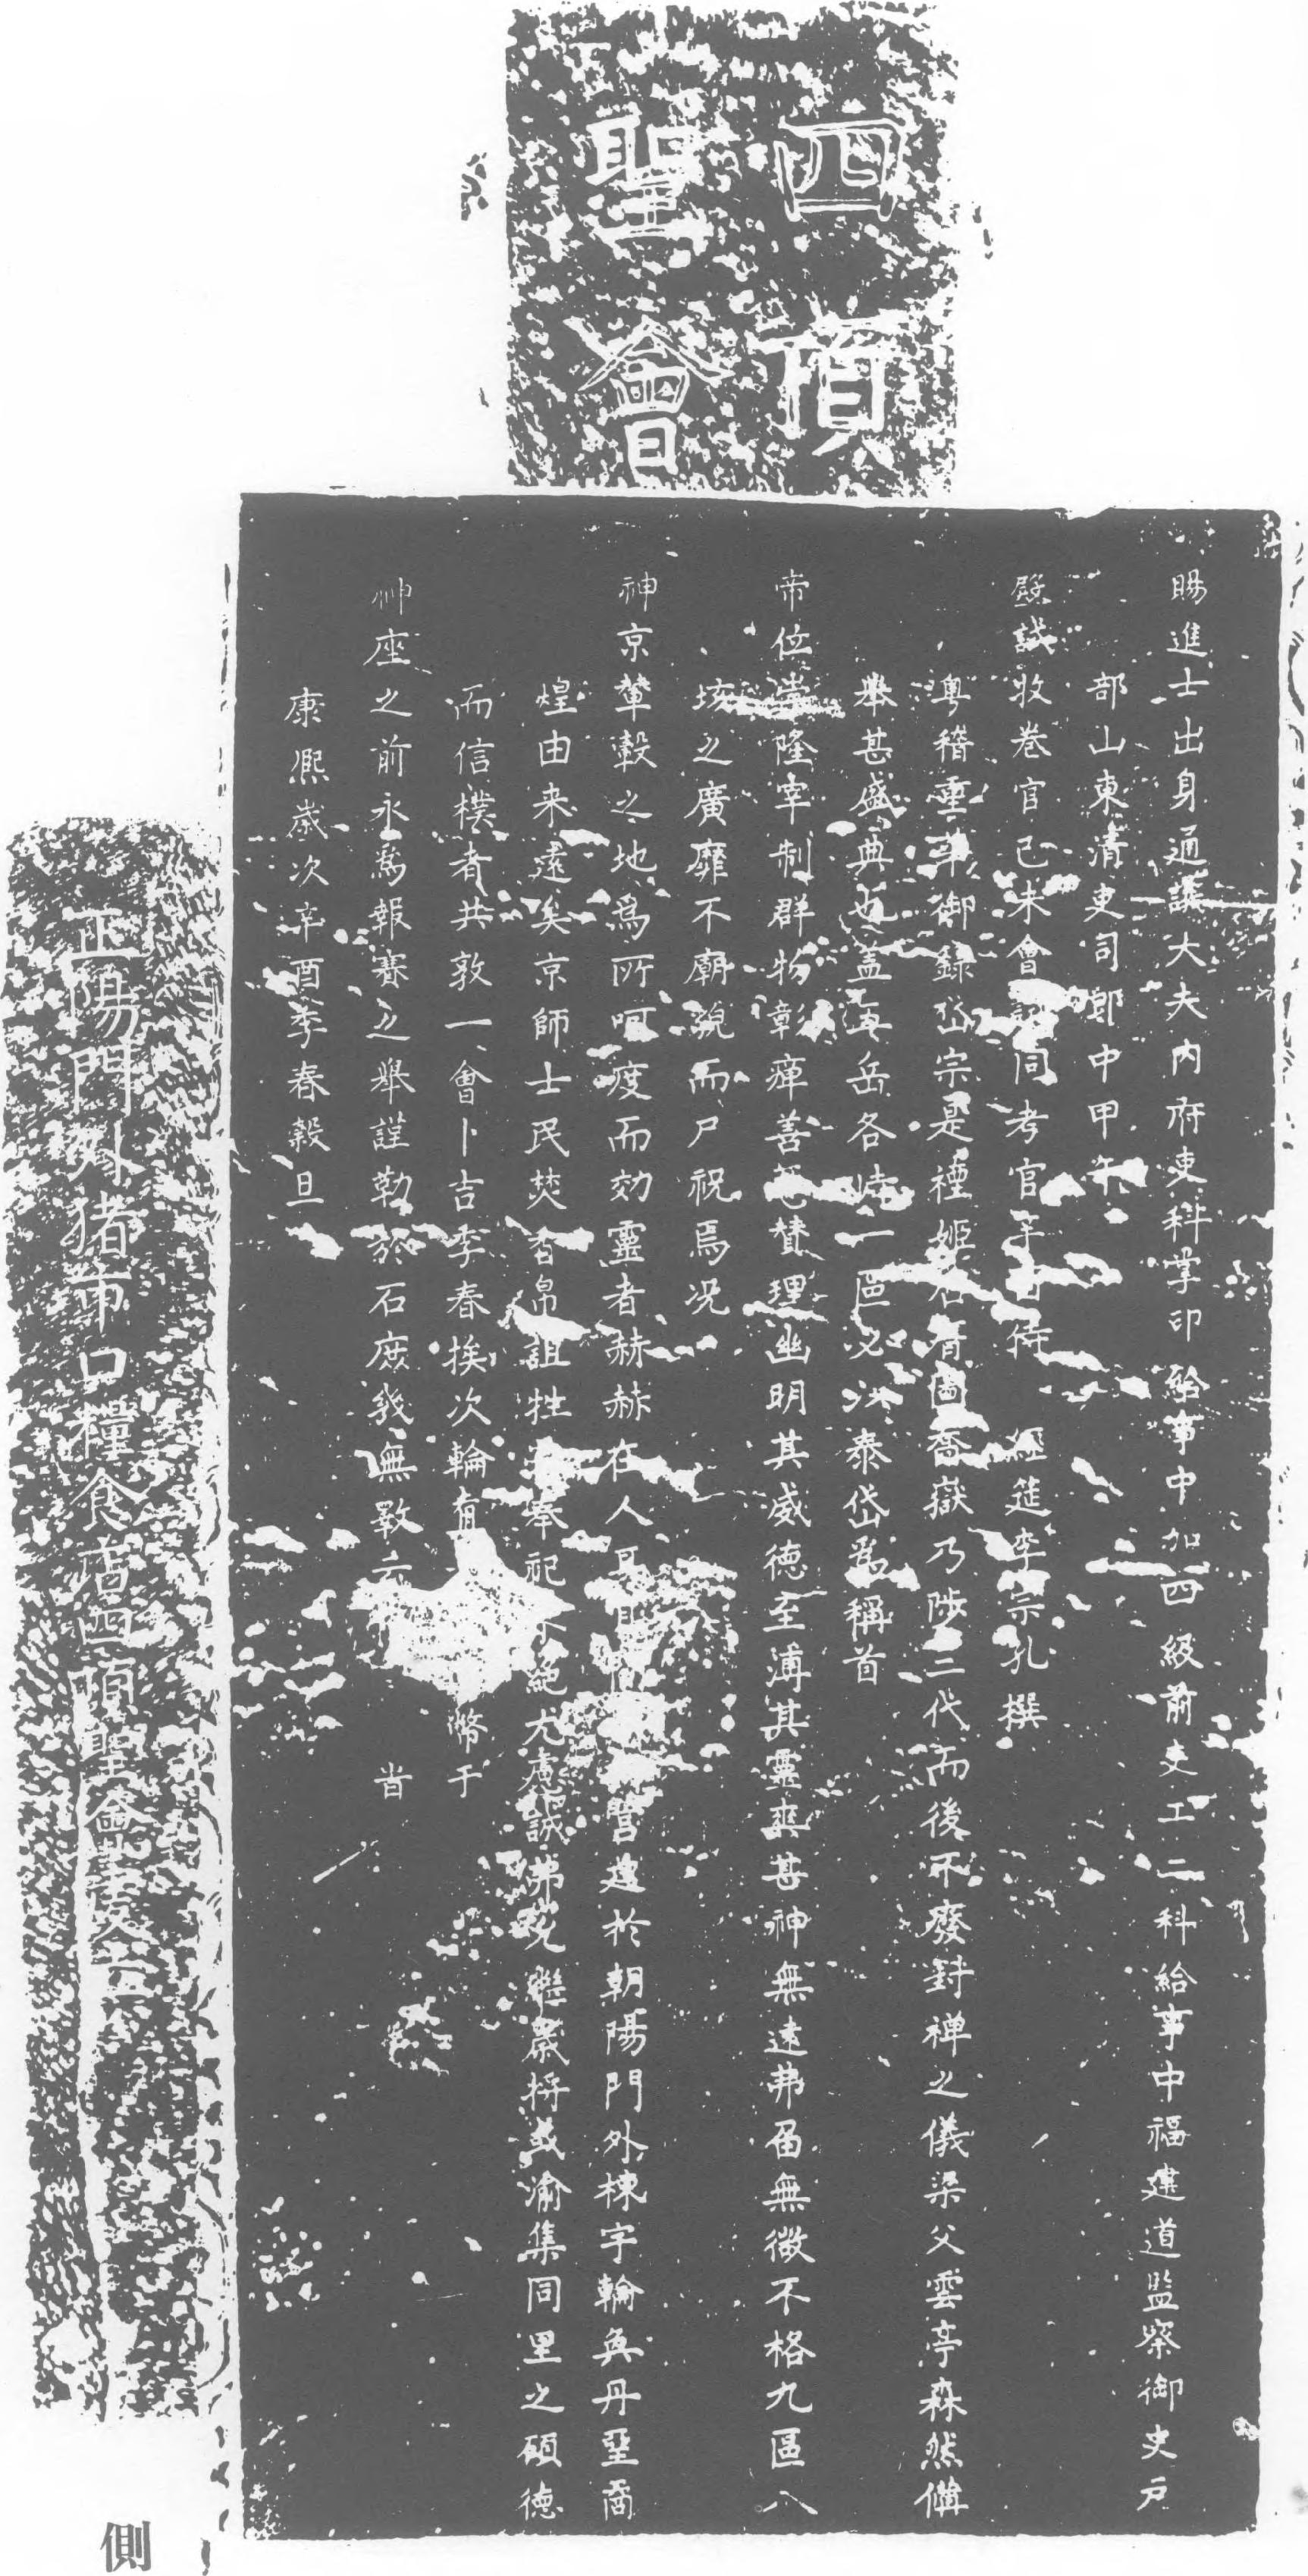 四頂
聖會
賜進士出身通議大夫內府吏科掌印給事中加四級前吏工二科給事中福建道監察御史戶
部山東清吏司郎中甲午
殿試收卷官己未會試同考官侍經筵李宗孔撰
粵稽重華御錄岱宗是禋姬有喬嶽乃陟三代而後不廢封禪之儀梁父雲亭森然備
舉甚盛典也蓋海岳各峙一邑必以泰岱為稱首
帝位崇隆宰制群物彰癉善惡贊理幽明其威德至溥其靈爽甚神無遠弗屆無微不格九區八
垓之廣靡不廟貌而尸祝焉況
神京輦轂之地為所呵度而効靈者赫赫在人耳目營建於朝陽門外棟宇輪奐丹堊裔
煌由來遠矣京師士民焚香帛詛牲奉祀不絕尤慮誠弗克繼歲將或渝集同里之碩德
而信樸者共敦一會卜吉季春挨次輪有幣于
神座之前永為報賽之舉謹勒於石庶幾無斁云旹
康熙歲次辛酉季春穀旦
正陽門外猪市口糧食店四頂聖會碑文
側